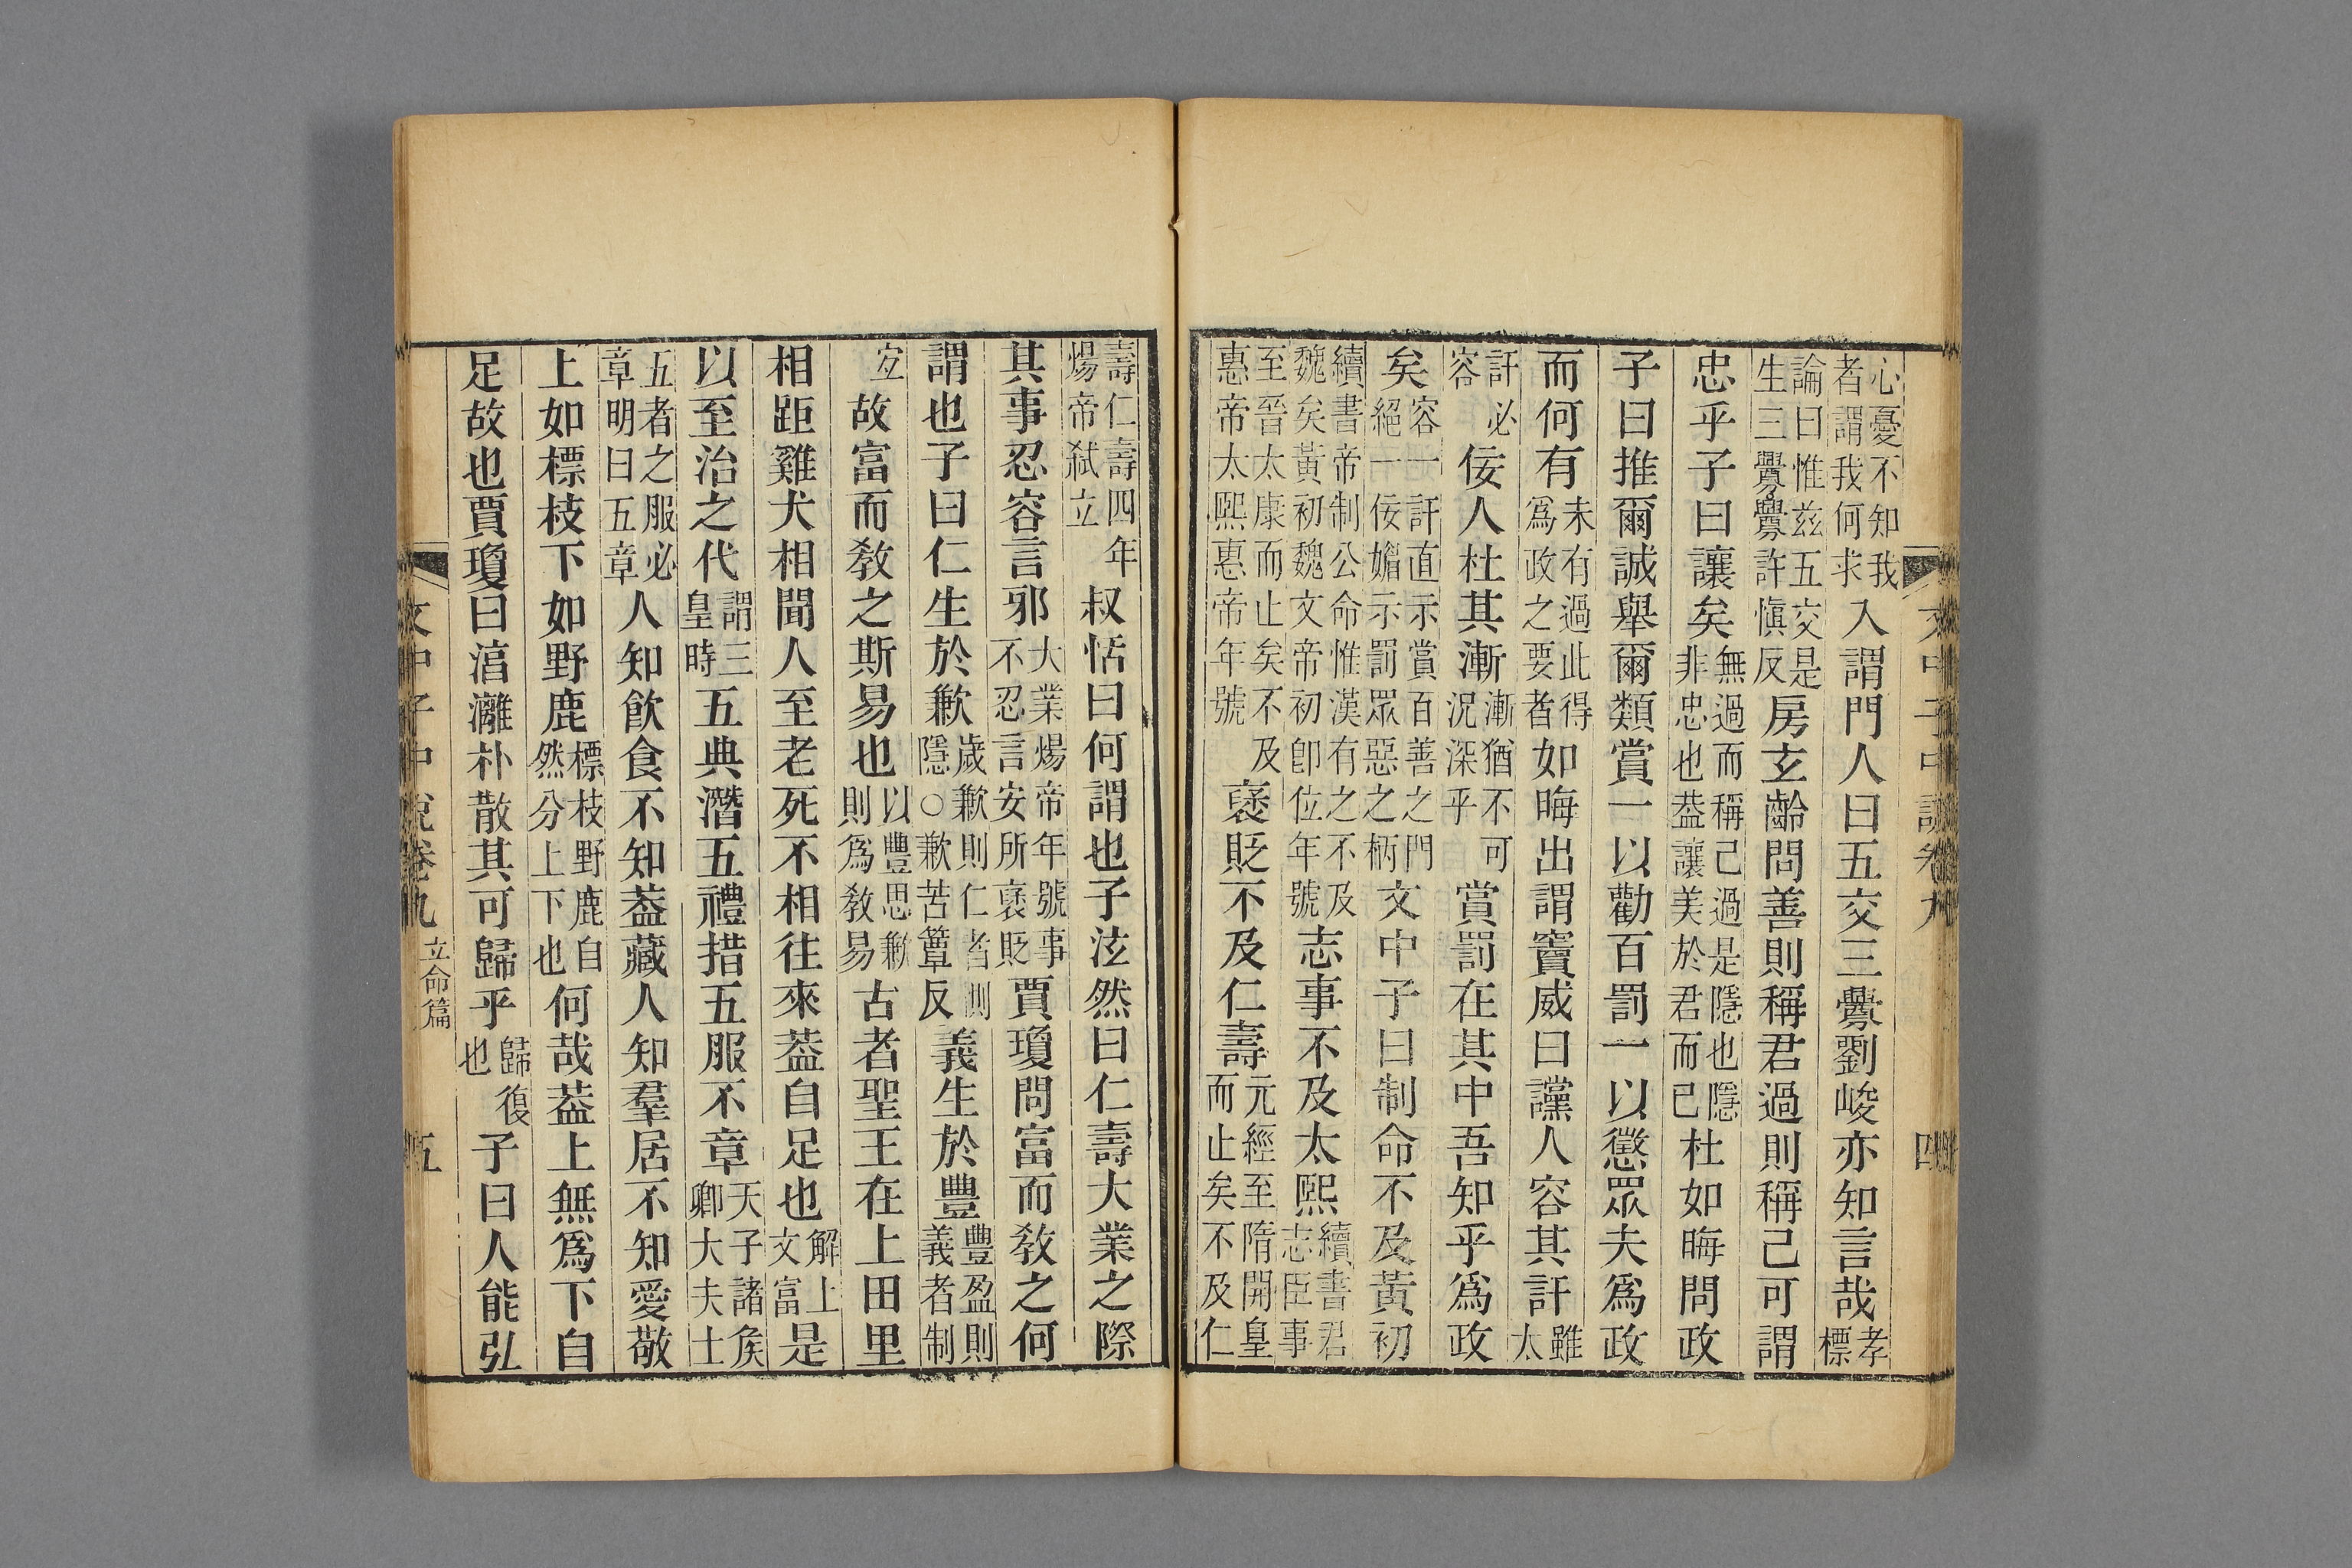 文中子中說卷九 四
心憂不知我者謂我何求入謂門人曰五交三釁劉峻亦知言哉孝標
論曰惟兹五交是生三釁釁許愼反房玄齡問善則稱君過則稱己可謂
忠乎子曰讓矣無過而稱己過是隱也隱非忠也葢讓美於君而已杜如晦問政
子曰推爾誠舉爾類賞一以勸百罰一以懲眾夫爲政
而何有未有過此得爲政之要者如晦出謂竇威曰讜人容其訐雖太
訐必容佞人杜其漸漸猶不可況深乎賞罰在其中吾知乎爲政
矣容一訐直示賞百善之門絕一佞媚示罰眾惡之柄文中子曰制命不及黃初
續書帝制公命惟漢有之不及魏矣黃初魏文帝初卽位年號志事不及太熙續書君志臣事
至晉太康而止矣不及惠帝太熙惠帝年號襃貶不及仁壽元經至隋開皇而止矣不及仁
壽仁壽四年煬帝弑立叔恬曰何謂也子泫然曰仁壽大業之際
其事忍容言邪大業煬帝年號事不忍言安所襃貶賈瓊問富而敎之何
謂也子曰仁生於歉歲歉則仁者惻隱○歉苦簟反義生於豐豐盈則義者制
宐故富而敎之斯易也以豐思歉則爲敎易古者聖王在上田里
相距雞犬相聞人至老死不相往來葢自足也解上文富是
以至治之代謂三皇時五典潛五禮措五服不章天子諸矦卿大夫士
五者之服必章明曰五章人知飮食不知葢藏人知羣居不知愛敬
上如標枝下如野鹿標枝野鹿自然分上下也何哉葢上無爲下自
足故也賈瓊曰淳漓朴散其可歸乎歸復也子曰人能弘
文中子中說卷九 立命篇 五